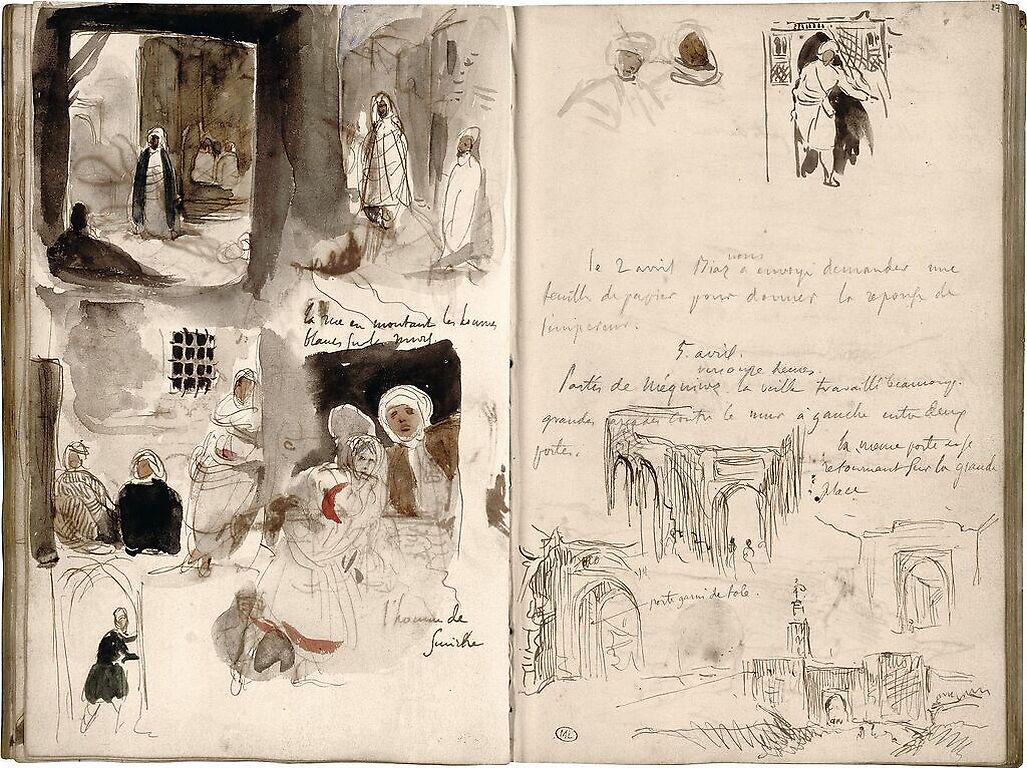 la rue en montant les hommes
blancs sur le mur.
l'homme de
27
le 2 avril Biaz nous a envoyé demander une
feuille de papier pour donner la réponse de
l'empereur.
5. avril.
Partis de Méquinez
la veille travaillé beaucoup.
grandes arcades contre le mur à gauche entre deux
portes.
la même porte en se
retournant sur la grande
place
porte garni de tole.
ML